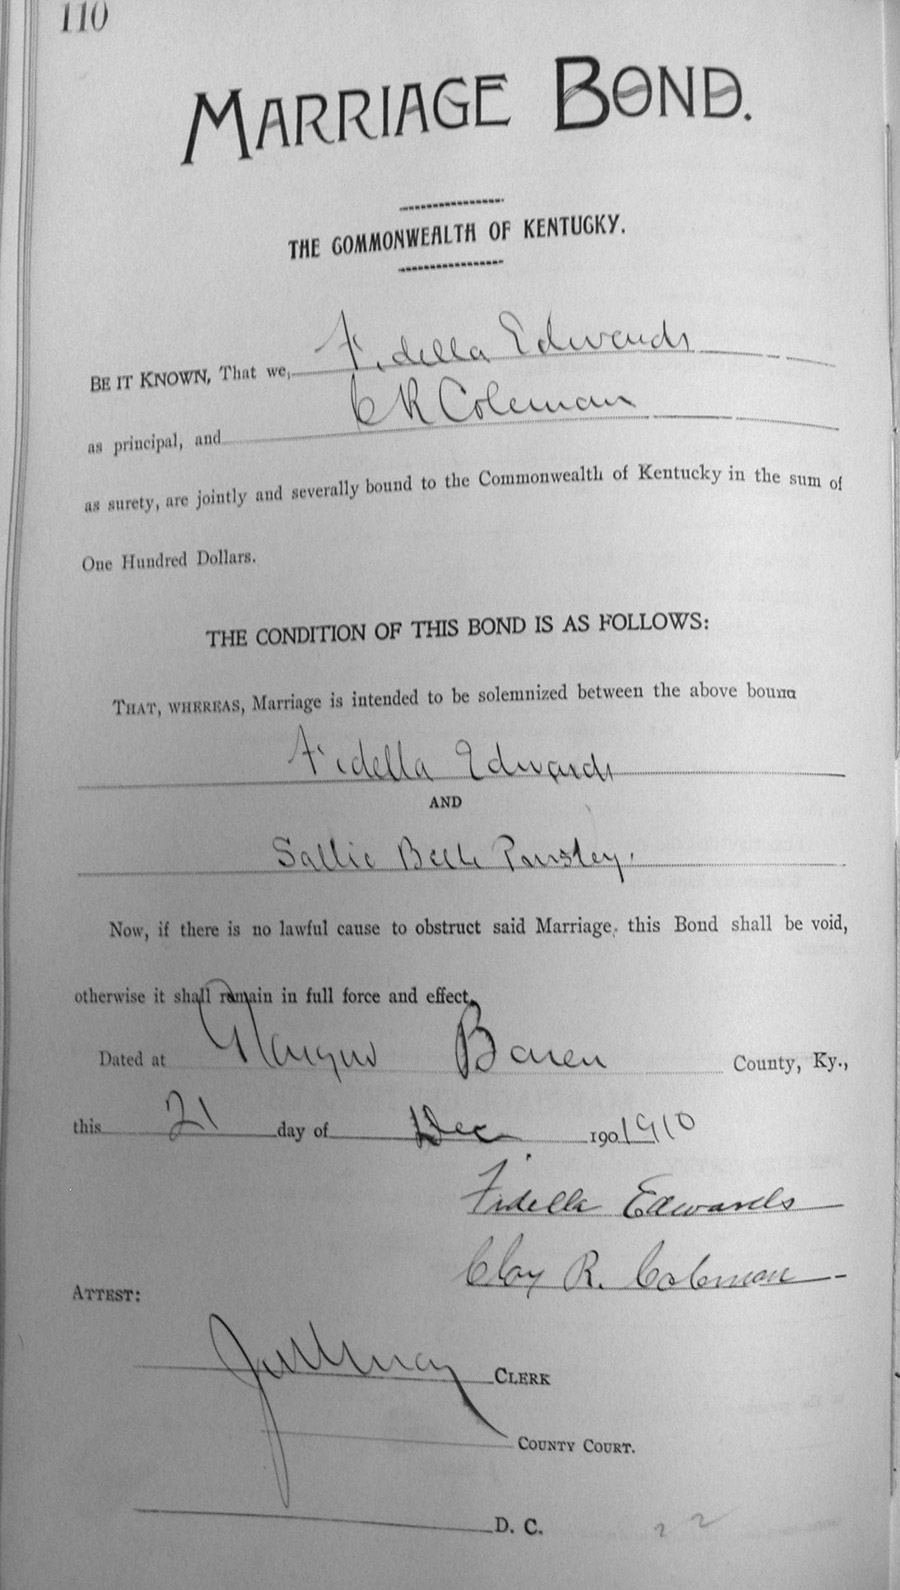 110
MARRIAGE BOND.
THE COMMONWEALTH OF KENTUCKY.
BE IT KNOWN, That we, Fidella Edwards
as principal, and C R Coleman
as surety, are jointly and severally bound to the Commonwealth of Kentucky in the sum of
One Hundred Dollars.
THE CONDITION OF THIS BOND IS AS FOLLOWS:
THAT, WHEREAS, Marriage is intended to be solemnized between the above bound
Fidella Edwards
AND
Sallie Belle Pursley.
Now, if there is no lawful cause to obstruct said Marriage, this Bond shall be void,
otherwise it shall remain in full force and effect.
Dated at Glasgow Barren County, Ky.,
this 21 day of Dec 190 1910
Fidella Edwards
Clay R. Coleman
ATTEST:
CLERK
COUNTY COURT.
D. C.
22